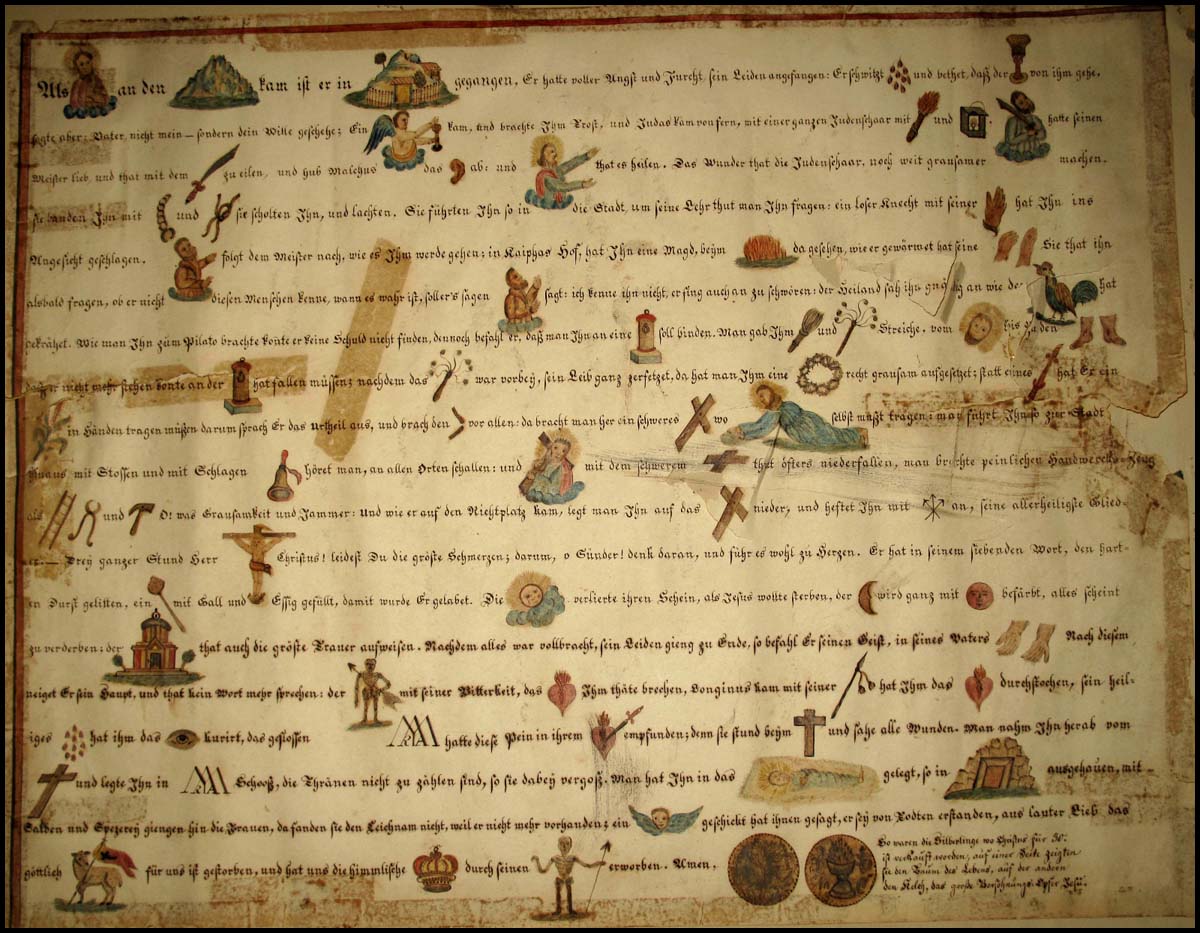 Als an den kam ist er in gegangen. Er hatte voller Angst und Furcht, sein Leiden angefangen: Er schwitzt und bethet, daß der von ihm gehe,
sagte aber: Vater, nicht mein — sondern dein Wille geschehe; Ein kam, und brachte Ihm Trost, und Judas kam von fern, mit einer ganzen Judenschaar mit und hatte seinen
Meister lieb, und that mit dem zu eilen, und hub Malchus das ab: und that es heilen. Das Wunder that die Judenschaar, noch weit grausamer machen.
sie banden Ihn mit und sie scholten Ihn, und lachten. Sie führten Ihn so in die Stadt, um seine Lehr thut man Ihn fragen: ein loser Knecht mit seiner hat Ihn ins
Angesicht geschlagen. folgt dem Meister nach, wie es Ihm werde gehen; in Kaiphas Hof, hat Ihn eine Magd, beym da gesehen, wie er gewärmet hat seine Sie that ihn
alsbald fragen, ob er nicht diesen Menschen kenne, wann es wahr ist, soller's sagen sagt: ich kenne ihn nicht, er fing auch an zu schwören: der Heiland sah ihn an wie hat
gekrähet. Wie man Ihn zum Pilato brachte konte er keine Schuld nicht finden, dennoch befahl er, daß man Ihn an eine soll binden. Man gab Ihm und Streiche, vom bis zu den
daß er nicht mehr stehen konte an der hat fallen müssen; nachdem das war vorbey, sein Leib ganz zerfetzet, da hat man Ihm eine recht grausam aufgesetzet; statt eines hat Er ein
in Händen tragen müßen darum sprach Er das Urtheil aus, und brach den vor allen: da bracht man her ein schweres wo selbst mußt tragen: man führt Ihn so zur Stadt
hinaus mit Stossen und mit Schlagen höret man, an allen Orten schallen: und mit dem schwerem thut öfters niederfallen, man brachte peinlichen Handwercks-Zeug
als und O! was Grausamkeit und Jammer: und wie er auf den Richtplatz kam, legt man Ihn auf das nieder, und heftet Ihn mit an, seine allerheiligste Glied-
er. — Drey ganzer Stund Herr Christus! leidest Du die gröste Schmerzen; darum, o Sünder! denk daran, und führ es wohl zu Herzen. Er hat in seinem siebenden Wort, den hart-
en Durst gelitten, ein mit Gall und Essig gefüllt, damit wurde Er gelabet. Die verlierte ihren Schein, als Jesus wollte sterben, der wird ganz mit befärbt, alles scheint
zu verderben; der that auch die gröste Trauer aufweisen. Nachdem alles war vollbracht, sein Leiden gieng zu Ende, so befahl Er seinen Geist, in seines Vaters Nach diesem
neiget Er sein Haupt, und that kein Wort mehr sprechen: der mit seiner Bitterkeit, das Ihm thäte brechen, Longinus kam mit seiner hat Ihm das durchstochen, sein heil-
iges hat ihm das kurirt, das geflossen hatte diese Pein in ihrem empfunden; denn sie stund beym und sahe alle Wunden. Man nahm Ihn herab vom
und legte Ihn in Schooß, die Thränen nicht zu zählen sind, so sie dabey vergoß. Man hat Ihn in das gelegt, so in ausgehauen, mit-
Salben und Spezerey giengen hin die Frauen, da fanden sie den Leichnam nicht, weil er nicht mehr vorhanden; ein geschickt hat ihnen gesagt, er sey von Todten erstanden, aus lauter Lieb das
göttlich für uns ist gestorben, und hat uns die himmlische durch seinen erworben. Amen.
So waren die Silberlinge wo Christus für 30.
ist verkauft worden, auf einer Seite zeigten
sie den Baum des Lebens, auf der andern
den Kelch, das große Versöhnungs-Opfer Jesu.